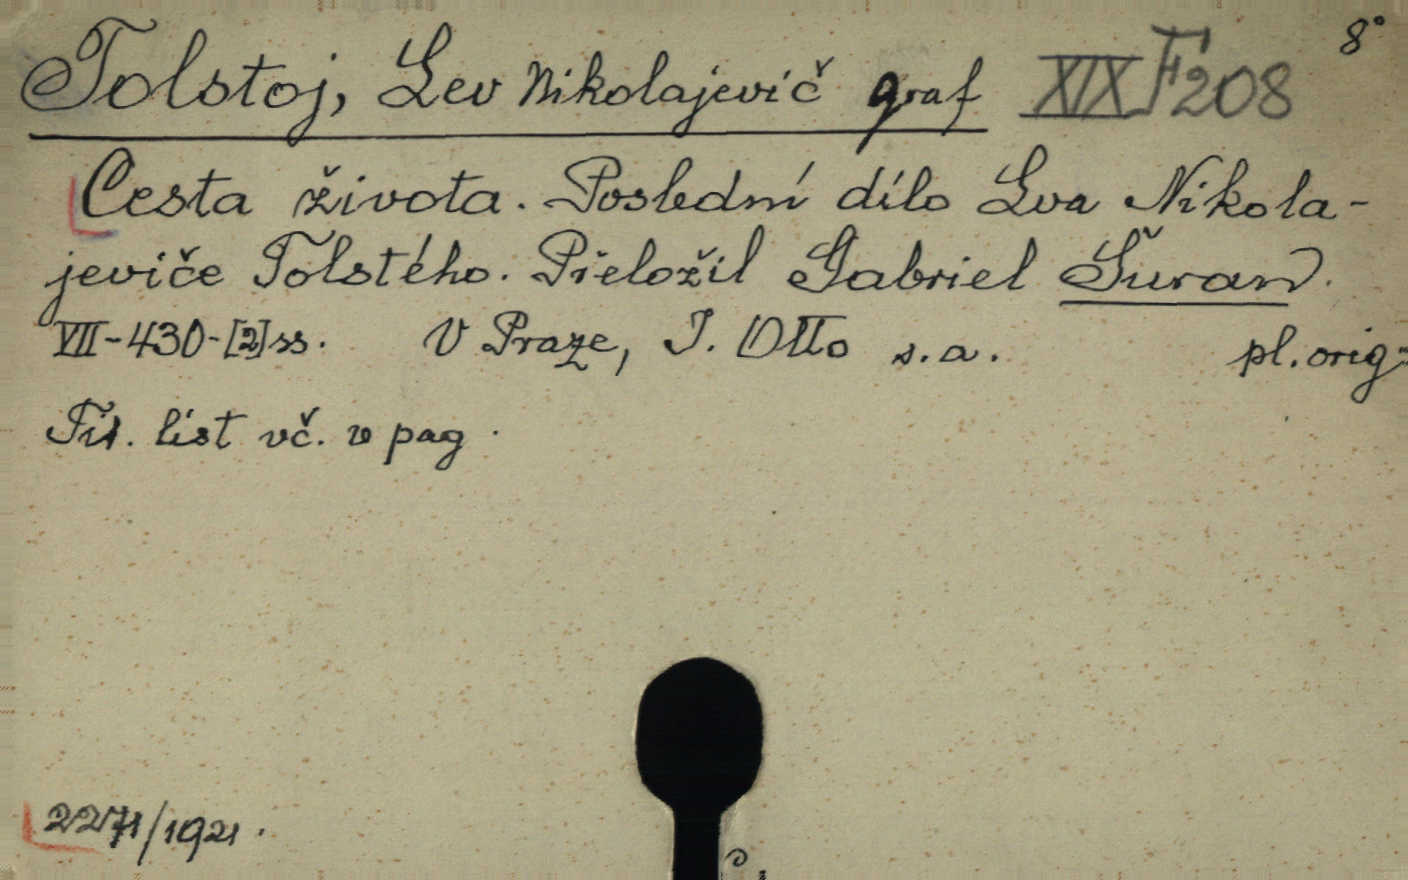 8°
Tolstoj, Lev Nikolajevič graf XIX F 208
Cesta života. Poslední dílo Lva Nikola-
jeviče Tolstého. Přeložil Gabriel Šuran.
VII-430-[2] ss. V Praze, J. Otto s. a. pl. orig.
Tit. list vč. v pag.
2271/1921.